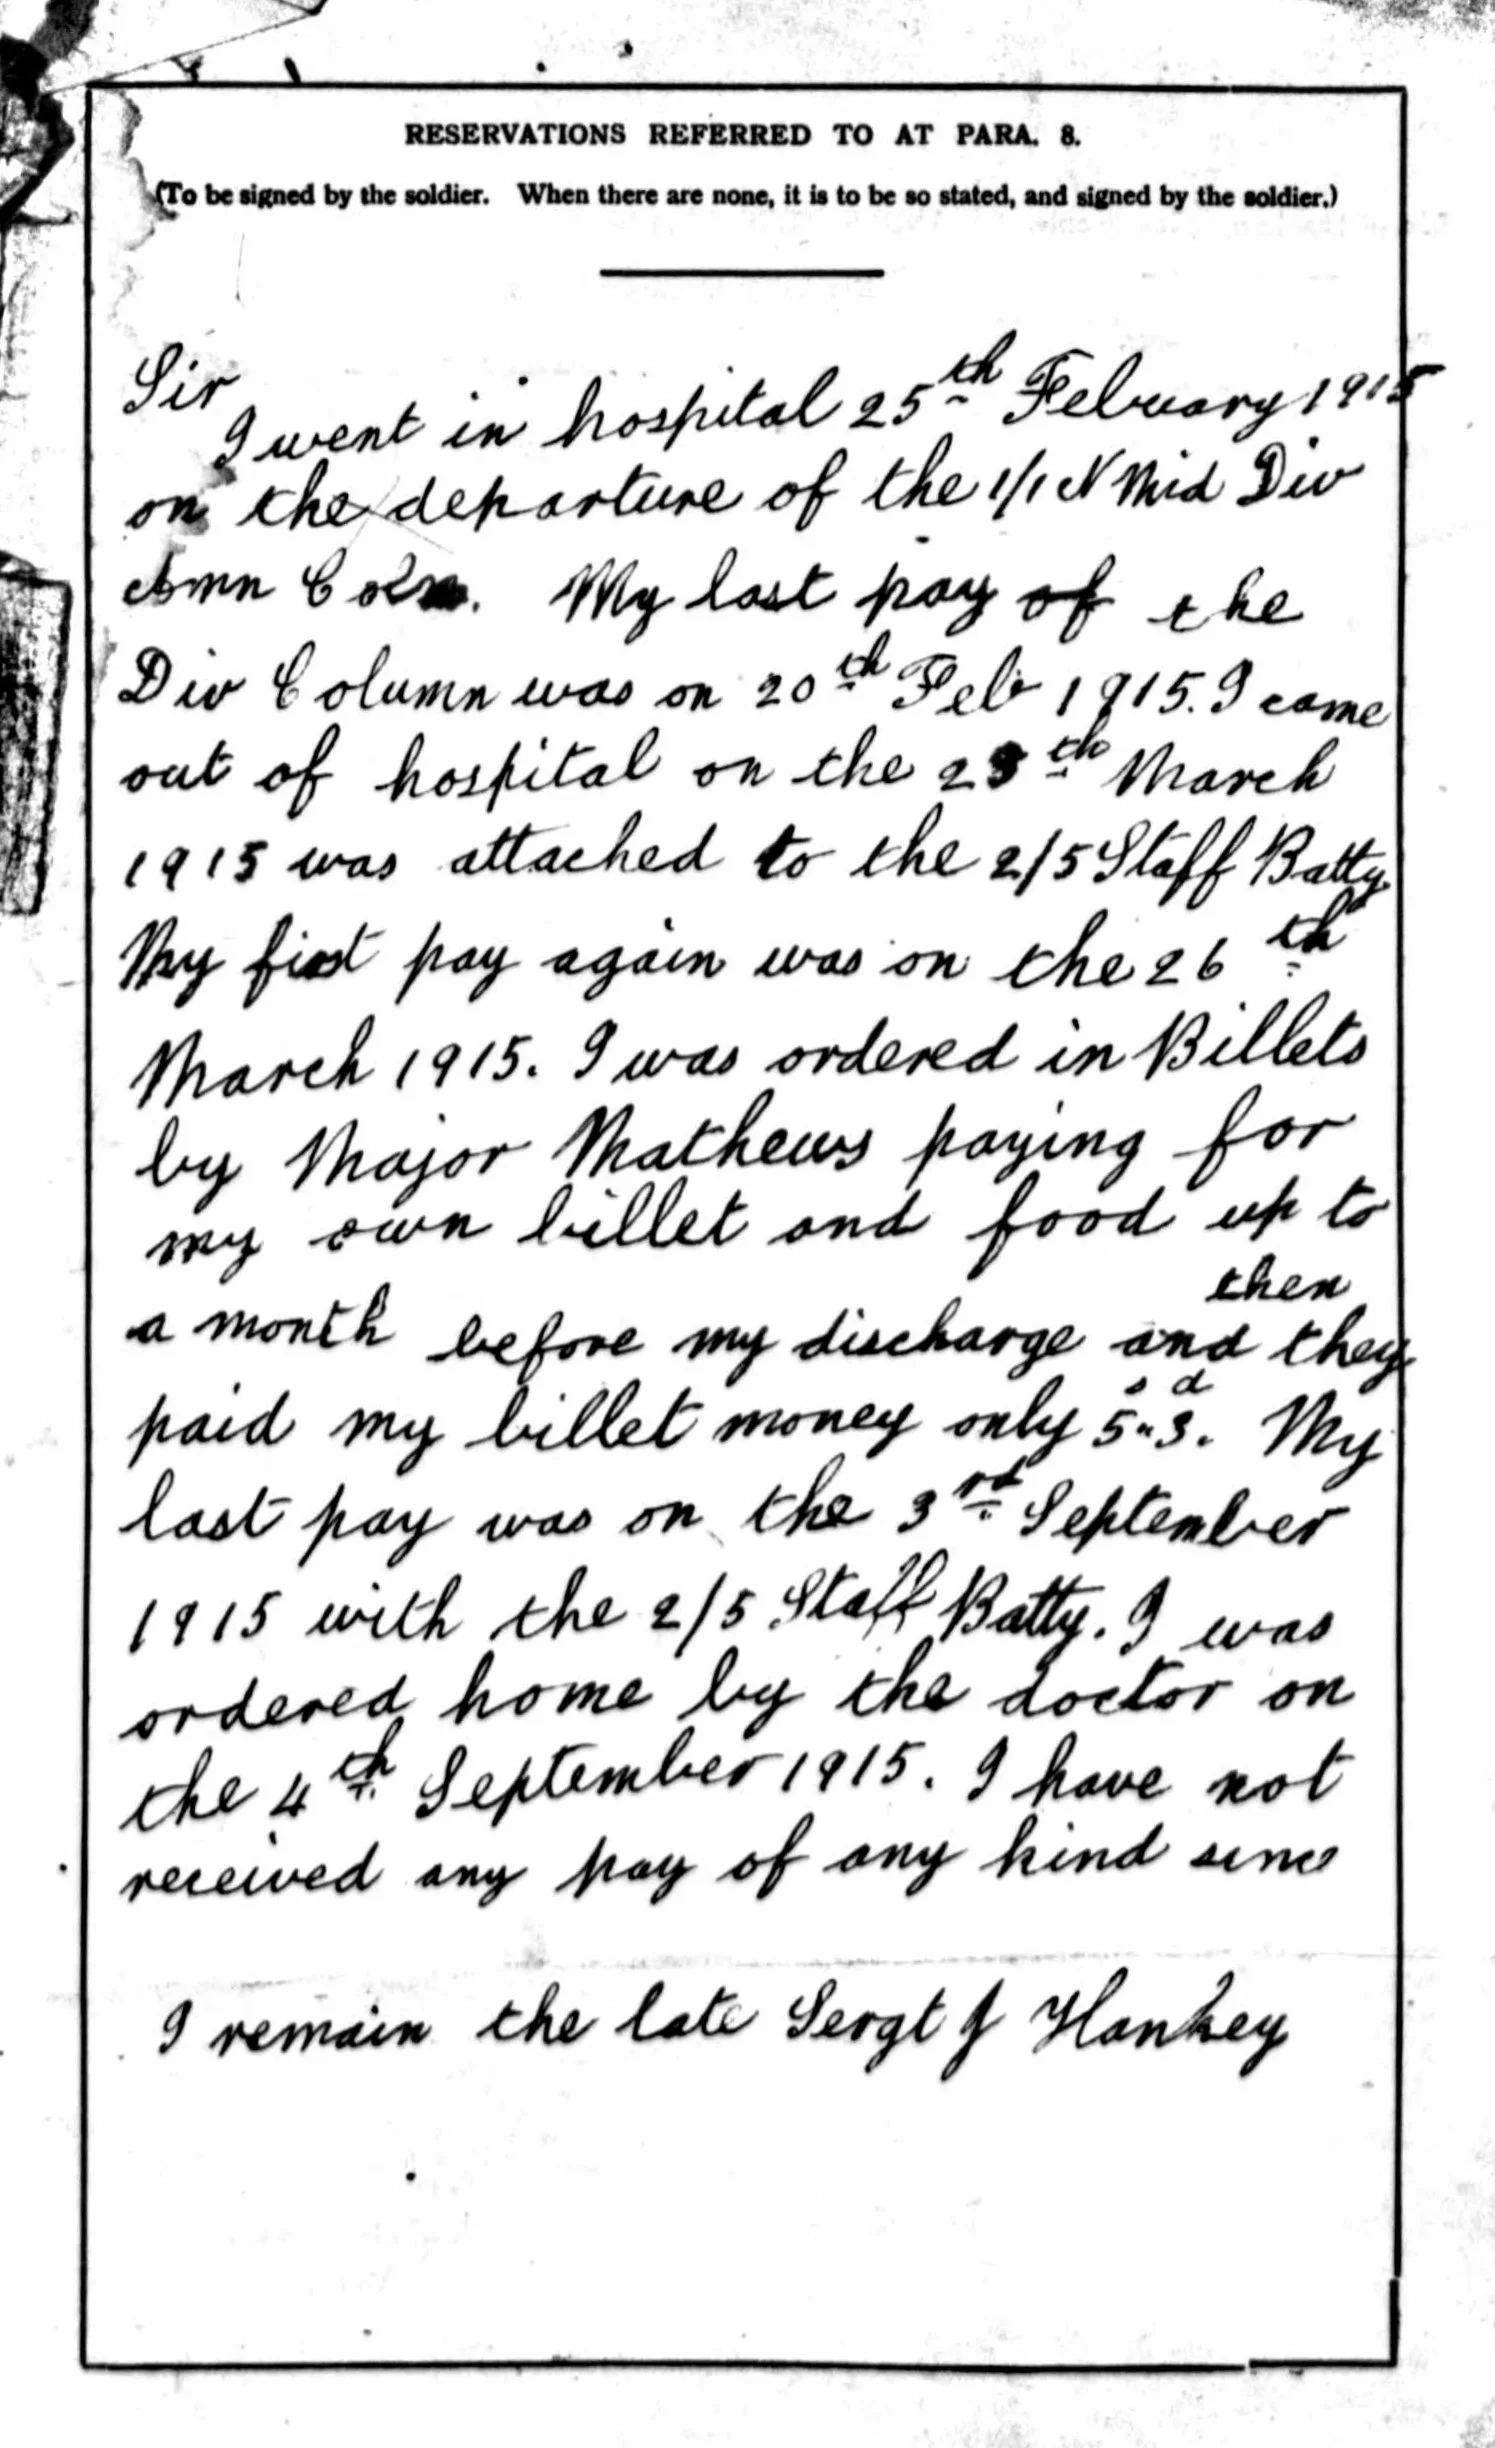 RESERVATIONS REFERRED TO AT PARA. 8.
(To be signed by the soldier. When there are none, it is to be so stated, and signed by the soldier.)
Sir
I went in hospital 25th February 1915
on the departure of the 1/1 N Mid Div
Amn Coln. My last pay of the
Div Column was on 20th Feb 1915. I came
out of hospital on the th March
1915 was attached to the 2/5 Staff Batty.
My first pay again was on the 26th
March 1915. I was ordered in Billets
by Major Mathews paying for
my own billet and food up to
then
a month before my discharge and they
paid my billet money only 5s-3d. My
last pay was on the 3rd September
1915 with the 2/5 Staff Batty. I was
ordered home by the doctor on
the 4th September 1915. I have not
received any pay of any kind since
I remain the late Sergt J Hankey